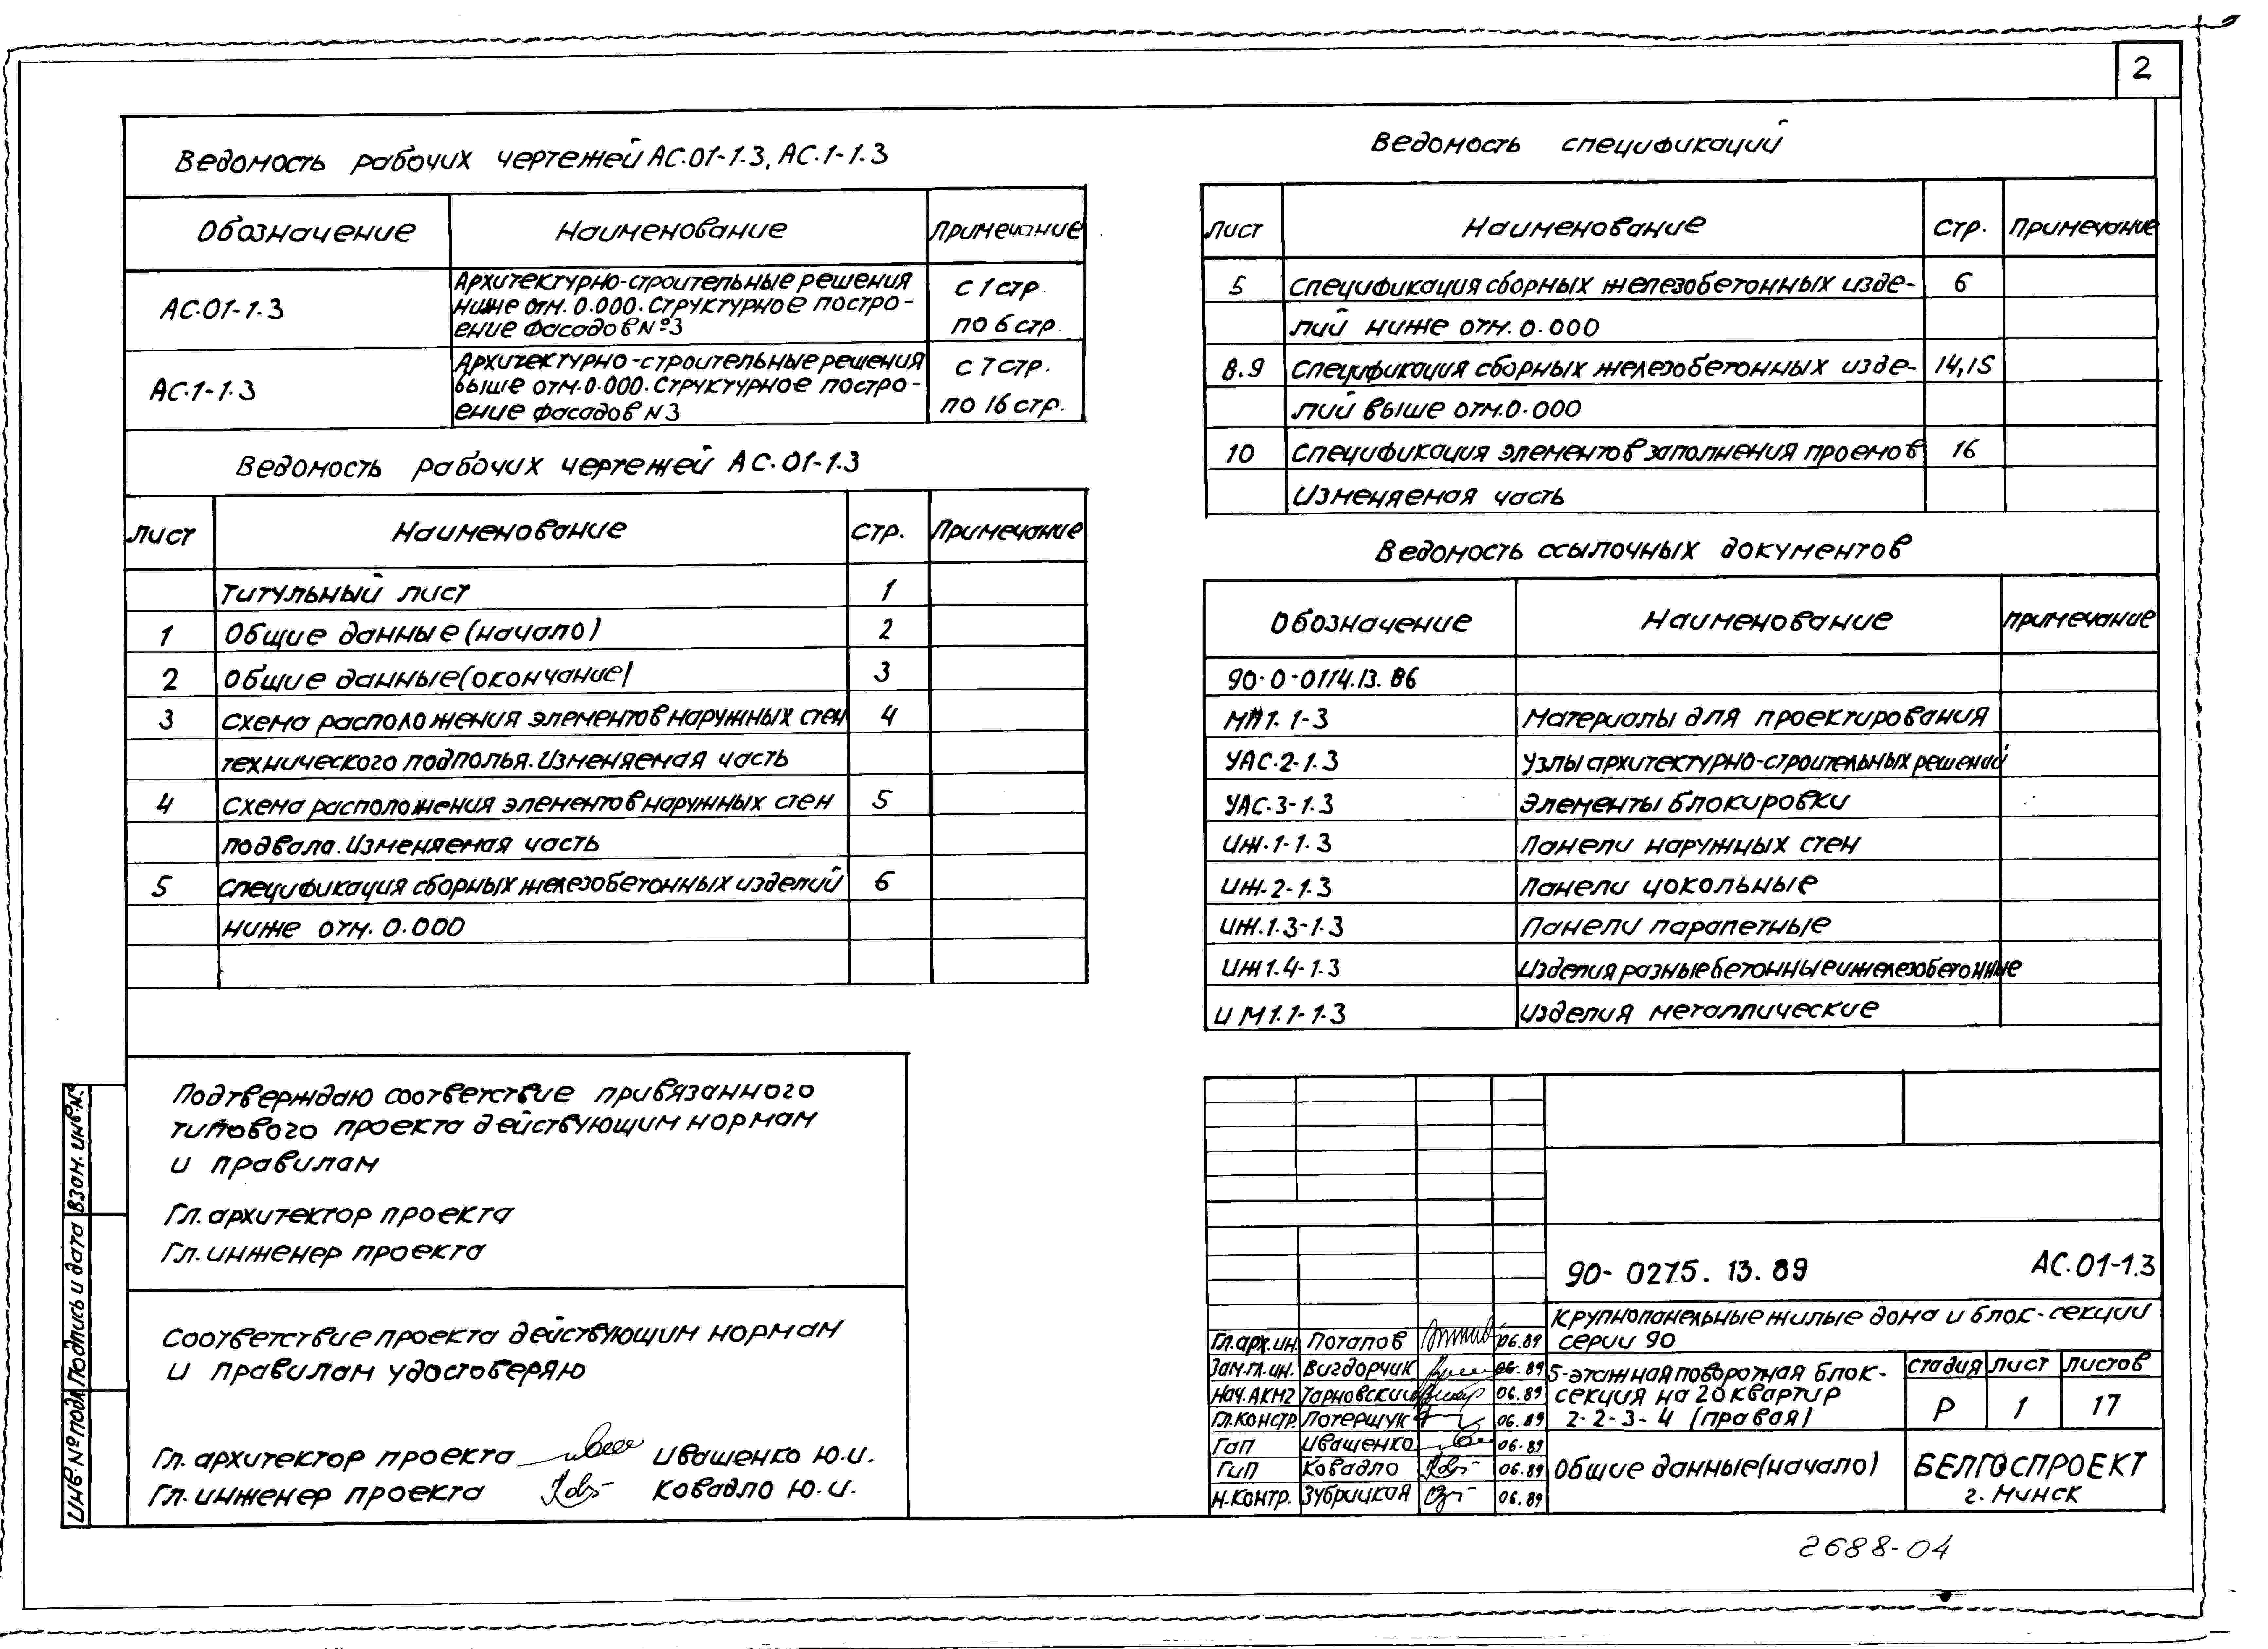 2
Ведомость рабочих чертежей АС.01-1.3, АС.1-1.3
Обозначение Наименование Примечание
АС.01-1.3 Архитектурно-строительные решения с 1 стр.
ниже отм. 0.000. Структурное постро-
ение фасадов №3 по 6 стр.
АС.1-1.3 Архитектурно-строительные решения с 7 стр.
выше отм. 0.000. Структурное постро-
ение фасадов N3 по 16 стр.
Ведомость рабочих чертежей АС.01-1.3
Лист Наименование Стр. Примечание
Титульный лист 1
1 Общие данные (начало) 2
2 Общие данные (окончание) 3
3 Схема расположения элементов наружных стен 4
технического подполья. Изменяемая часть
4 Схема расположения элементов наружных стен 5
подвала. Изменяемая часть
5 Спецификация сборных железобетонных изделий 6
ниже отм. 0.000
Подтверждаю соответствие привязанного
типового проекта действующим нормам
и правилам
Гл. архитектор проекта
Гл. инженер проекта
Соответствие проекта действующим нормам
и правилам удостоверяю
Гл. архитектор проекта Иващенко Ю.И.
Гл. инженер проекта Ковадло Ю.И.
Инв. № подл. Подпись и дата Взам. инв. №
Ведомость спецификаций
Лист Наименование Стр. Примечание
5 Спецификация сборных железобетонных изде- 6
лий ниже отм. 0.000
8.9 Спецификация сборных железобетонных изде- 14,15
лий выше отм. 0.000
10 Спецификация элементов заполнения проемов 16
Изменяемая часть
Ведомость ссылочных документов
Обозначение Наименование Примечание
90-0-0114.13.86
МП1.1-3 Материалы для проектирования
УАС.2-1.3 Узлы архитектурно-строительных решений
УАС.3-1.3 Элементы блокировки
ИЖ.1-1.3 Панели наружных стен
ИЖ.2-1.3 Панели цокольные
ИЖ.1.3-1.3 Панели парапетные
ИЖ1.4-1.3 Изделия разные бетонные и железобетонные
ИМ1.1-1.3 Изделия металлические
90-0275.13.89 АС.01-1.3
Крупнопанельные жилые дома и блок-секции
серии 90
Гл.арх.ин. Потапов 06.89
Зам.гл.ин. Вигдорчик 06.89
Нач.АКМ2 Тарновский 06.89
Гл.констр. Потерщук 06.89
ГАП Иващенко 06.89
ГИП Ковадло 06.89
Н.контр. Зубрицкая 06.89
5-этажная поворотная блок-
секция на 20 квартир
2-2-3-4 (правая)
Стадия Лист Листов
Р 1 17
Общие данные (начало)
БЕЛГОСПРОЕКТ
г. Минск
2688-04